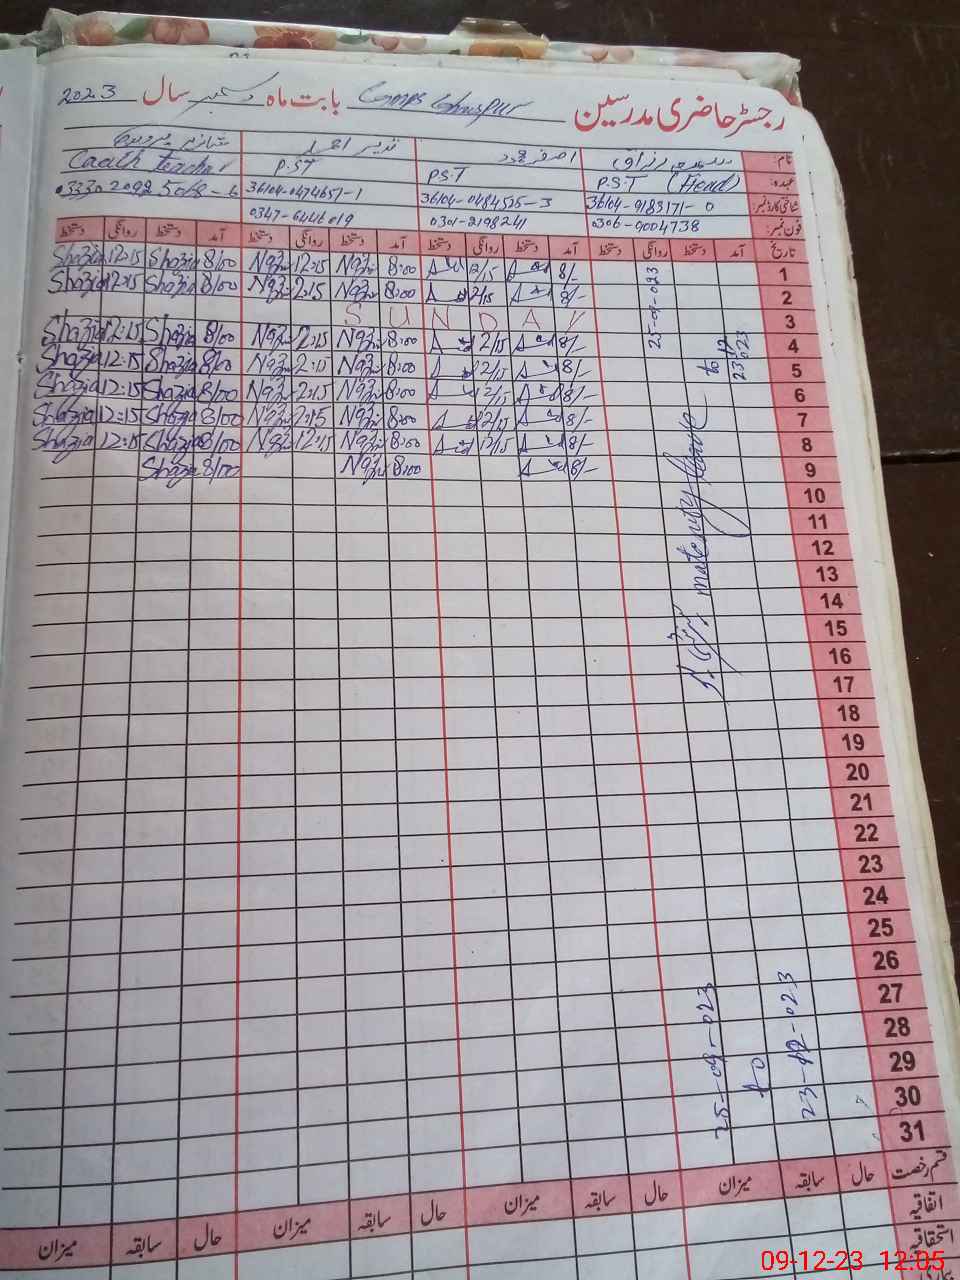 رجسٹر حاضری مدرسین بابت ماہ دسمبر سال 2023
نام:
عہدہ: P.S.T (Head) P.S.T P.S.T Teacher
شناختی کارڈ نمبر: 36104-9183171-0 36104-0484525-3 36104-0474657-1
فون نمبر: 0306-9004738 0301-2198241 0347-6446019
تاریخ آمد دستخط روانگی دستخط آمد دستخط روانگی دستخط آمد دستخط روانگی دستخط آمد دستخط روانگی دستخط
1 8/- 12/15 8:00 12:15 8/00 Shazia 12:15 Shazia
2 8/- 12/15 8:00 2:15 8/00 Shazia 12:15 Shazia
3 SUNDAY
4 8/- 12/15 8:00 12:15 8/00 Shazia 12:15 Shazia
5 8/- 12/15 8:00 2:15 8/00 Shazia 12:15 Shazia
6 8/- 12/15 8:00 2:15 8/00 Shazia 12:15 Shazia
7 8/- 12/15 8:00 2:15 8/00 Shazia 12:15 Shazia
8 8/- 12/15 8:00 12:15 8/00 Shazia 12:15 Shazia
9 8/- 8:00 8/00 Shazia
10
11
12
13
14
15
16
17
18
19
20
21
22
23
24
25
26
27
28
29
30
31
25-09-023
to
23-12-023
maternity leave
25-09-023
to
23-12-023
قسم رخصت حال سابقہ میزان حال سابقہ میزان حال سابقہ میزان حال سابقہ میزان
اتفاقیہ
استحقاقیہ
09-12-23 12:05